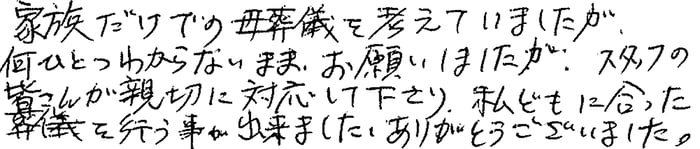 家族だけでの母葬儀を考えていましたが、
何ひとつわからないまま、お願いしましたが、スタッフの
皆さんが親切に対応して下さり、私どもに合った
葬儀を行う事が出来ました。ありがとうございました。